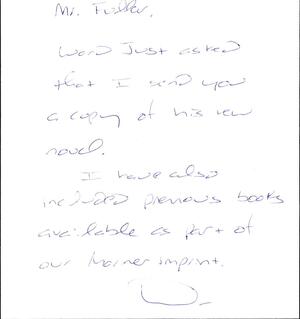 Mr.
Ward Just asked
that I send you
a copy of his new
novel.
I have also
included previous books
available as part of
our Mariner imprint.